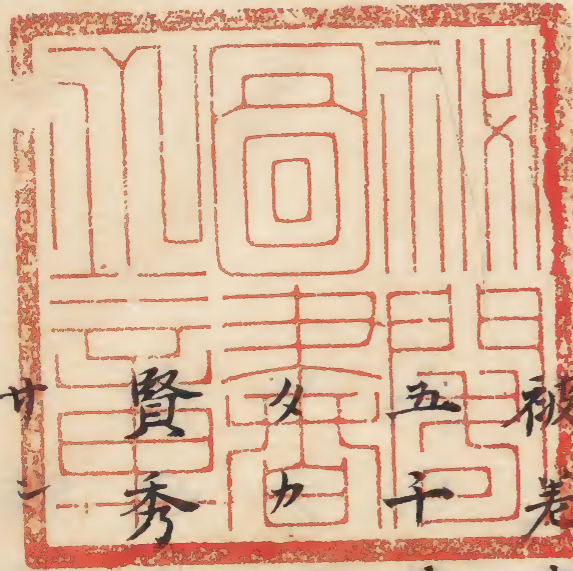 秘閣
圖書
之章
被差
五千
タカ
賢秀
廿二